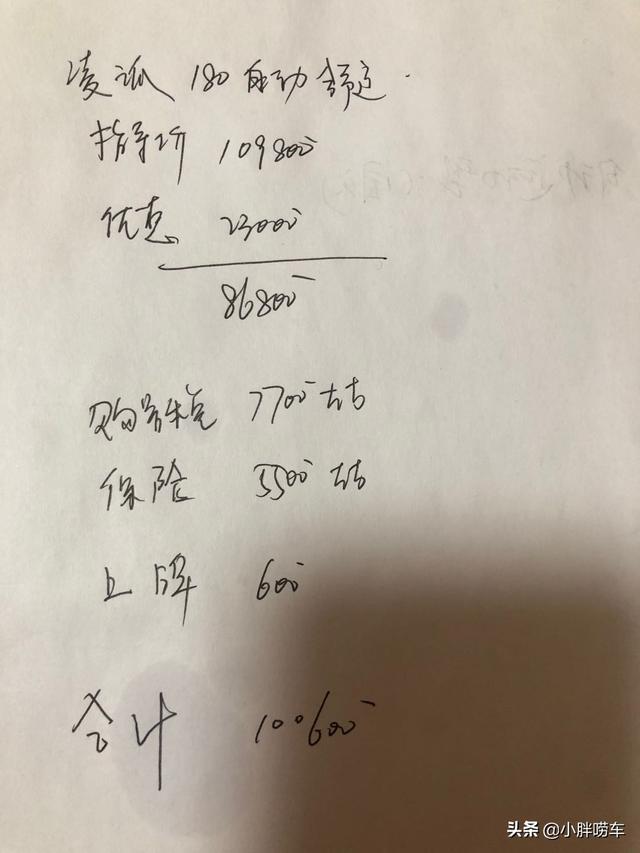 凌派 180 自动舒适.
指导价 109800
优惠 23000
86800
购置税 7700左右
保险 5500左右
上牌 600
合计 100600
头条 @小胖唠车